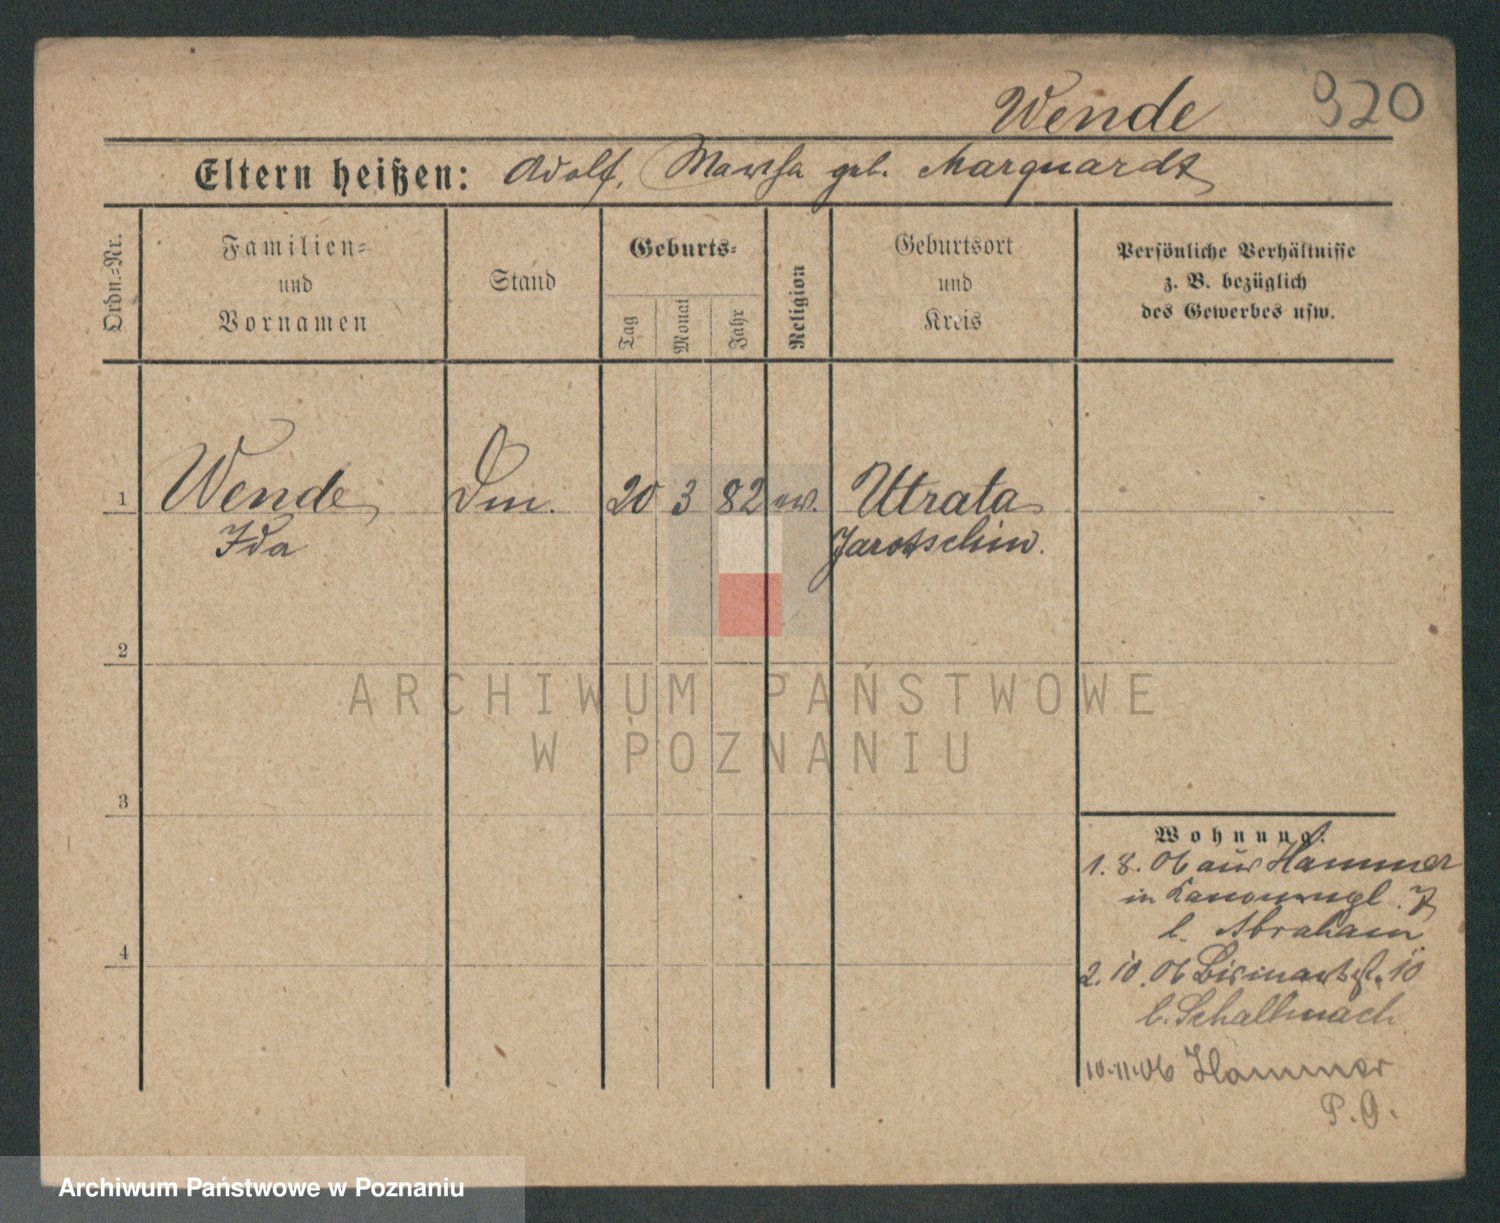 Wende 320
Eltern heißen: Adolf, Martha geb. Marquardt
Ordn.-Nr.
Familien-
und
Vornamen
Stand
Geburts-
Tag
Monat
Jahr
Religion
Geburtsort
und
Kreis
Persönliche Verhältnisse
z. B. bezüglich
des Gewerbes usw.
1 Wende Dm. 20 3 82 ev. Utrata
Ida Jarotschin.
2
ARCHIWUM PAŃSTWOWE
W POZNANIU
3
Wohnung.
1. 8. 06 aus Hammer
in
b. Abraham
4
2. 10. 06 Bismarckst. 10
b. Schallmach
10.11.06 Hammer
P. O.
Archiwum Państwowe w Poznaniu